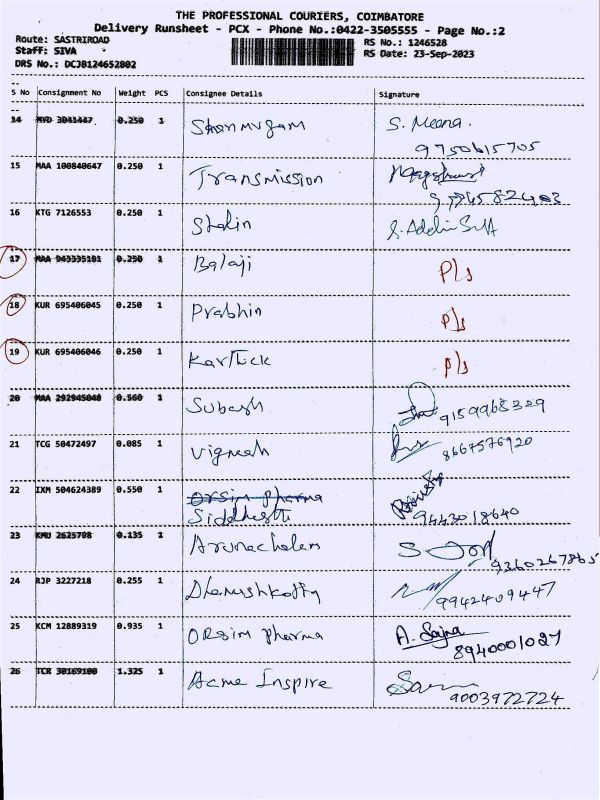 THE PROFESSIONAL COURIERS, COIMBATORE
Delivery Runsheet - PCX - Phone No.:0422-3505555 - Page No.:2
Route: SASTRIROAD RS No.: 1246528
Staff: SIVA RS Date: 23-Sep-2023
DRS No.: DCJB124652802
S No Consignment No Weight PCS Consignee Details Signature
14 MYD 3041447 0.250 1 Shanmugam S. Meena.
9750615705
15 MAA 100840647 0.250 1 Transmission
16 KTG 7126553 0.250 1 Stalin
17 MAA 943335101 0.250 1 Balaji P/s
18 KUR 695406045 0.250 1 Prabhin P/s
19 KUR 695406046 0.250 1 Karthick P/s
20 MAA 292945048 0.560 1 Subash 9159968329
21 TCG 50472497 0.085 1 Vignesh 8667576920
22 IXM 504624389 0.550 1 Orsim pharma
Siddhesh 9443018640
23 KMU 2625708 0.135 1 Arunachalam
9360267865
24 RJP 3227218 0.255 1 Dhanushkotty 9942409447
25 KCM 12889319 0.935 1 Orsim pharma A. Sajna
8940001027
26 TCR 30169100 1.325 1 Acme Inspire
9003972724